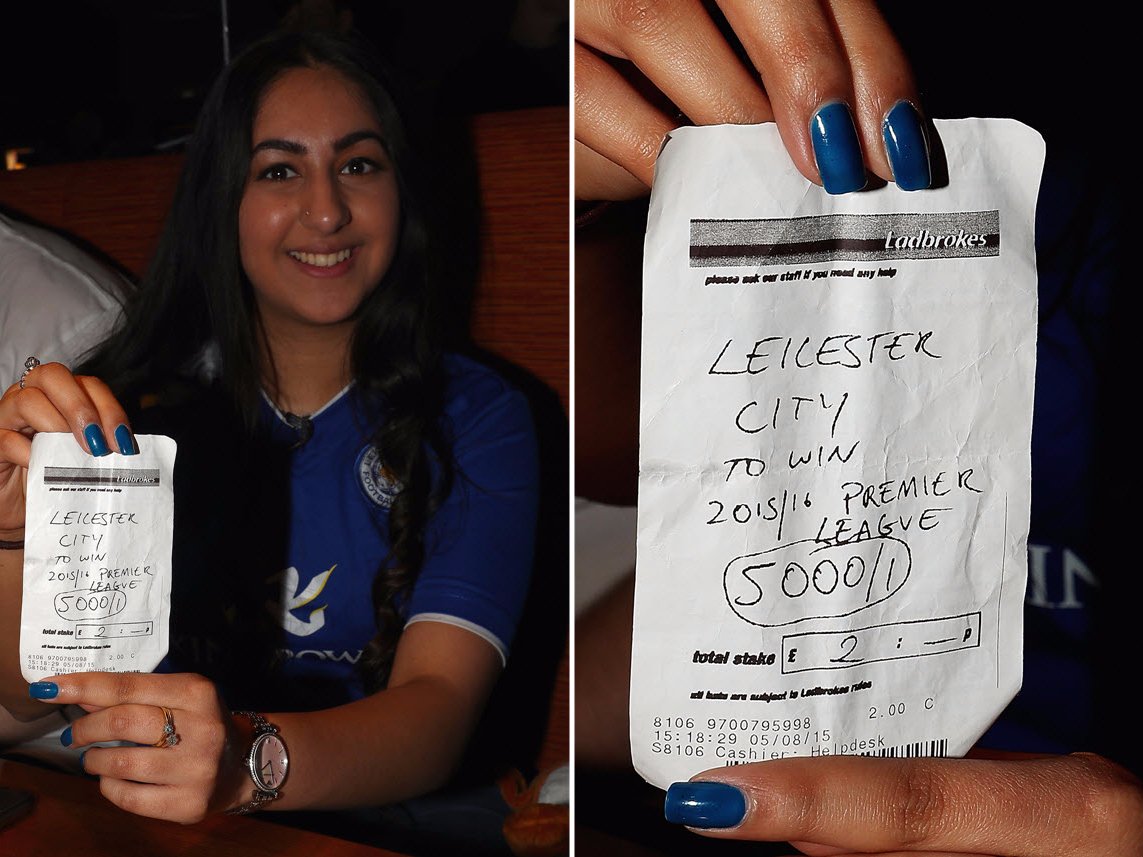 Ladbrokes
please ask our staff if you need any help
LEICESTER
CITY
TO WIN
2015/16 PREMIER
LEAGUE
5000/1
total stake £ 2 : — p
all bets are subject to Ladbrokes rules
8106 9700795998 2.00 C
15:18:29 05/08/15
S8106 Cashier: Helpdesk
Ladbrokes
please ask our staff if you need any help
LEICESTER
CITY
TO WIN
2015/16 PREMIER
LEAGUE
5000/1
total stake £ 2 : — p
all bets are subject to Ladbrokes rules
8106 9700795998 2.00 C
15:18:29 05/08/15
S8106 Cashier: Helpdesk